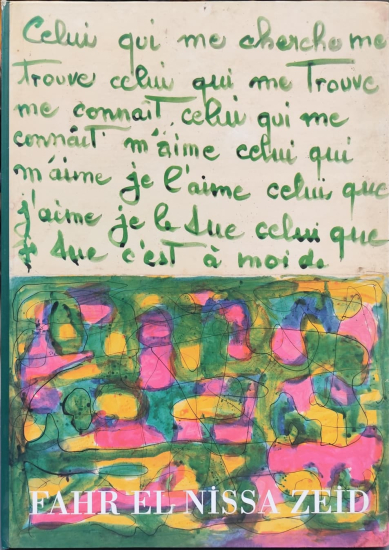 Celui qui me cherche me
trouve celui qui me Trouve
me connait, celui qui me
connait m'aime celui qui
m'aime je l'aime celui que
j'aime je le tue celui que
je tue c'est à moi de
FAHR EL NİSSA ZEİD